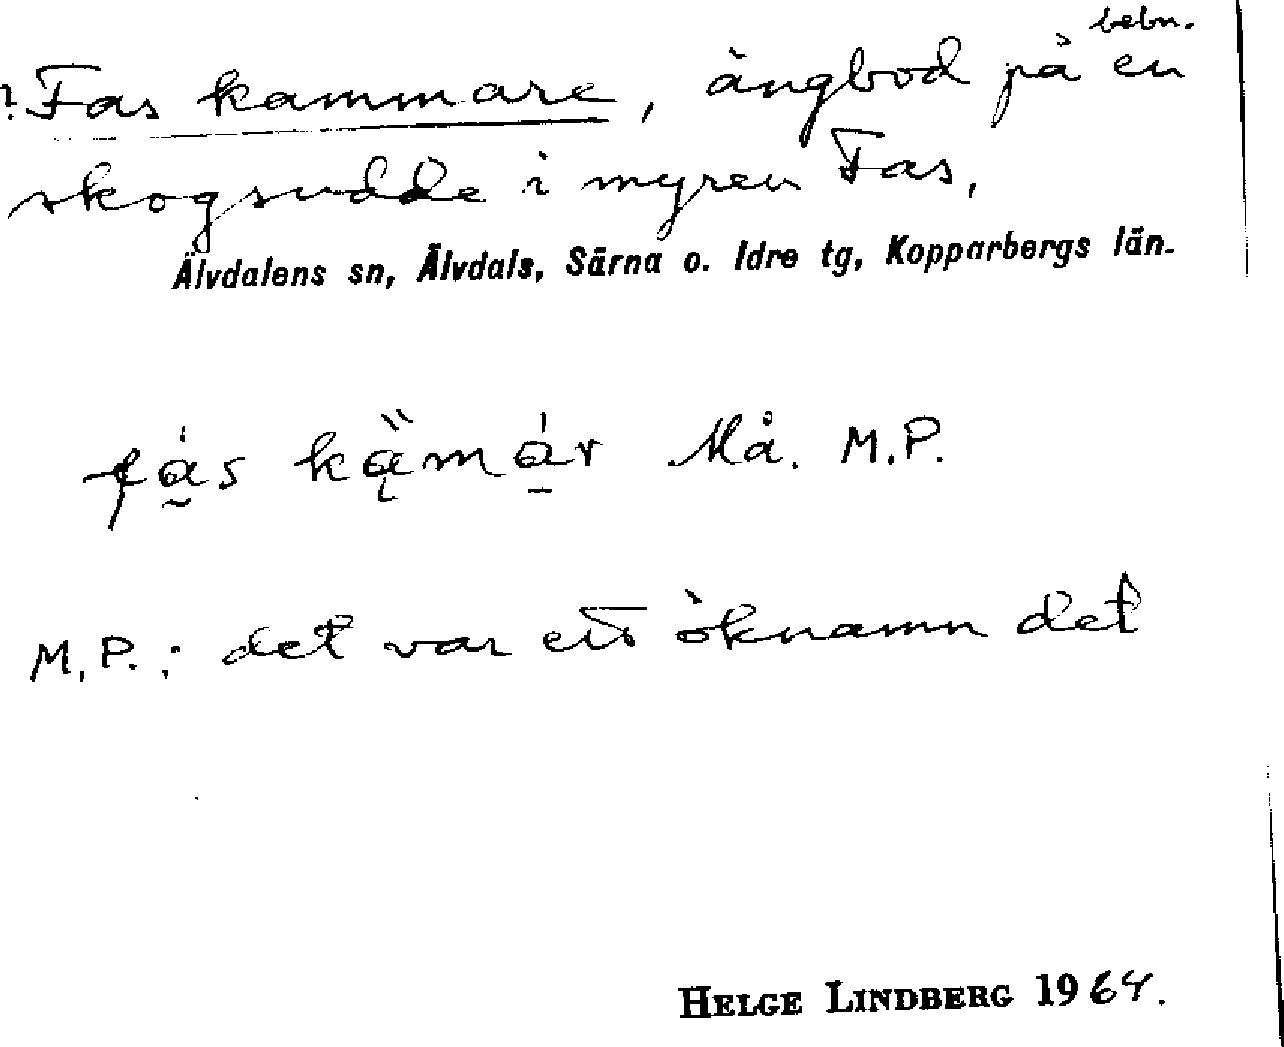 bebn.
? Fas kammare, ängbod på en
skogsudde i myren Fas,
Älvdalens sn, Älvdals, Särna o. Idre tg, Kopparbergs län.
Må. M.P.
M.P.: det var ett öknamn det
HELGE LINDBERG 1964.